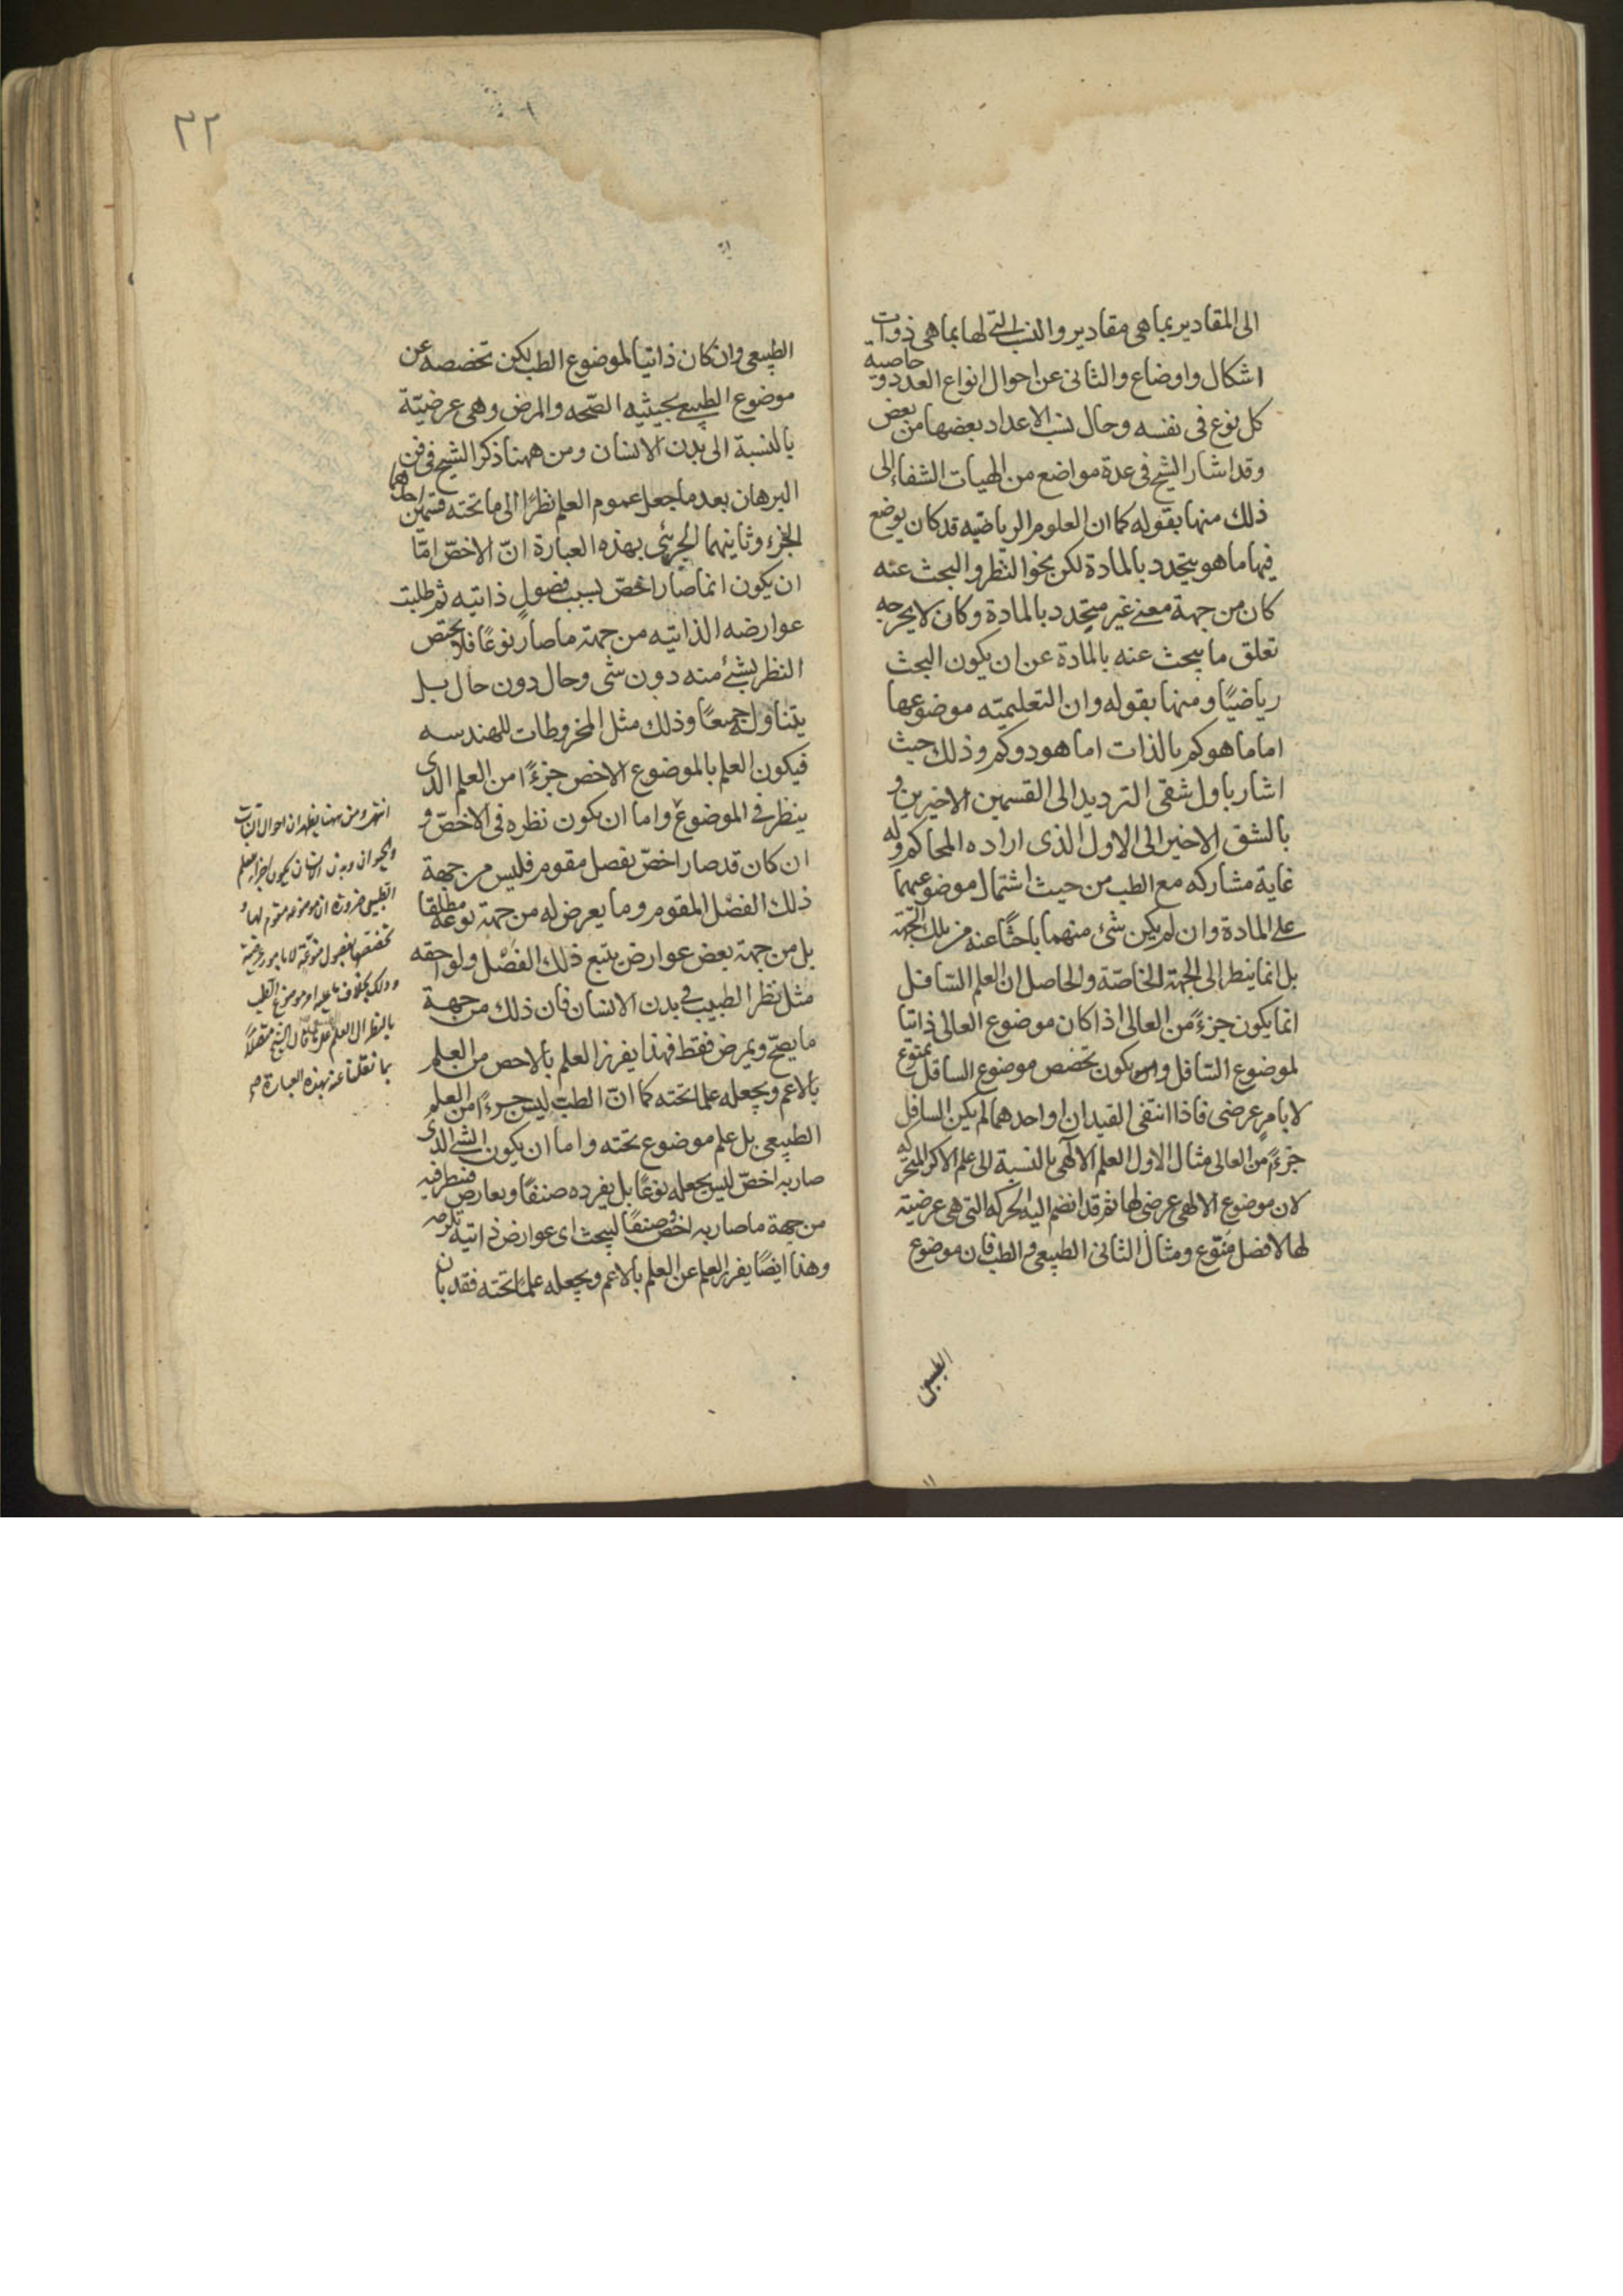 الى المقادير بما هى مقادير والنسب التى لها بما هى ذوات
اشكال واوضاع والثانى عن احوال انواع العدد و خاصية
كل نوع فى نفسه وحال نسب الاعداد بعضها من بعض
وقد اشار الشيخ فى عدة مواضع من الهيات الشفاء الى
ذلك منها بقوله كما ان العلوم الرياضيه قد كان يوضع
فيها ما هو يتحدد بالمادة لكن نحو النظر والبحث عنه
كان من جهة معنى غير متحدد بالمادة وكان لا يخرجه
تعلق ما يبحث عنه بالمادة عن ان يكون البحث
رياضيًا ومنها بقوله وان التعليميته موضوعها
اما ما هو كم بالذات اما هو ذو كم وذلك حيث
اشار باول شقى الترديد الى القسمين الاخيرين و
بالشق الاخير الى الاول الذى اراده المحاكم وله
غاية مشاركه مع الطب من حيث اشتمال موضوعيهما
على المادة وان لم يكن شئ منهما باحثًا عنه من تلك الجهة
بل انما ينظر الى الجهة الخاصّة والحاصل ان العلم السّافل
انما يكون جزءً من العالى اذا كان موضوع العالى ذاتيا
لموضوع السّافل و يكون تخصص موضوع السافل بمنوّع
لا بامرٍ عرضى فاذا انتفى القيدان او احدهما لم يكن السافل
جزءً من العالى مثال الاول العلم الالٓهى بالنسبة الى علم الاكر المتحركه
لان موضوع الالهى عرضى لها ثم قد انضم اليه الحركه التى هى عرضيته
لها لا فصل منوّع ومثال الثانى الطبيعى و الطب فان موضوع
الطبيعى
٣٢
الطبيعى وان كان ذاتيا لموضوع الطب لكن تخصصه عن
موضوع الطبيعى بحيثيه الصّحه والمرض وهى عرضيّة
بالنسبة الى بدن الانسان ومن ههنا ذكر الشيخ فى فن
البرهان بعد ما جعل عموم العلم نظرًا الى ما تحته قسمين احدهما
الجزء وثانيهما الجزئى بهذه العبارة انّ الاخصّ امّا
ان يكون انما صار اخصّ بسبب فصول ذاتيه ثم طلبت
عوارضه الذاتيه من جهة ما صار نوعًا فلا يختص
النظر بشئ منه دون شى وحال دون حال بل
يتناوله جميعًا وذلك مثل المخروطات للهندسه
فيكون العلم بالموضوع الاخص جزءًا من العلم الذى
ينظر فى الموضوع واما ان يكون نظره فى الاخصّ و
ان كان قد صار اخصّ بفصل مقوم فليس من جهة
ذلك الفصل المقوم وما يعرض له من جهة نوعه مطلقا
بل من جهة بعض عوارض يتبع ذلك الفصل ولواحقه
مثل نظر الطبيب فى بدن الانسان فان ذلك من جهة
ما يصحّ ويمرض فقط فهذا يفرز العلم بالاخص من العلم
بالاعم ويجعله علما تحته كما انّ الطب ليس جزءًا من العلم
الطبيعى بل علم موضوع تحته واما ان يكون الشئ الذى
صار به اخصّ ليس يجعله نوعًا بل يفرده صنفًا وبعارض فينظر فيه
من جهة ما صار به اخصّ وصنفًا ليبحث اى عوارض ذاتية تلزمه
وهذا ايضًا يفرز العلم عن العلم بالاعم ويجعله علمًا تحته فقد بان
انتهى ومن ههنا يظهر ان احوال النبات
والحيوان وبدن الانسان يكون اجزاء للعلم
الطبيعى ضرورة ان موضوعه مقوم لها و
تخصصها بفصول منوّعة لا بامور عرضية
وذلك بخلاف ما عليه امر موضوع الطب
بالنظر الى العلم قال الشيخ متصلاً
بما نقلنا عنه بهذه العبارة